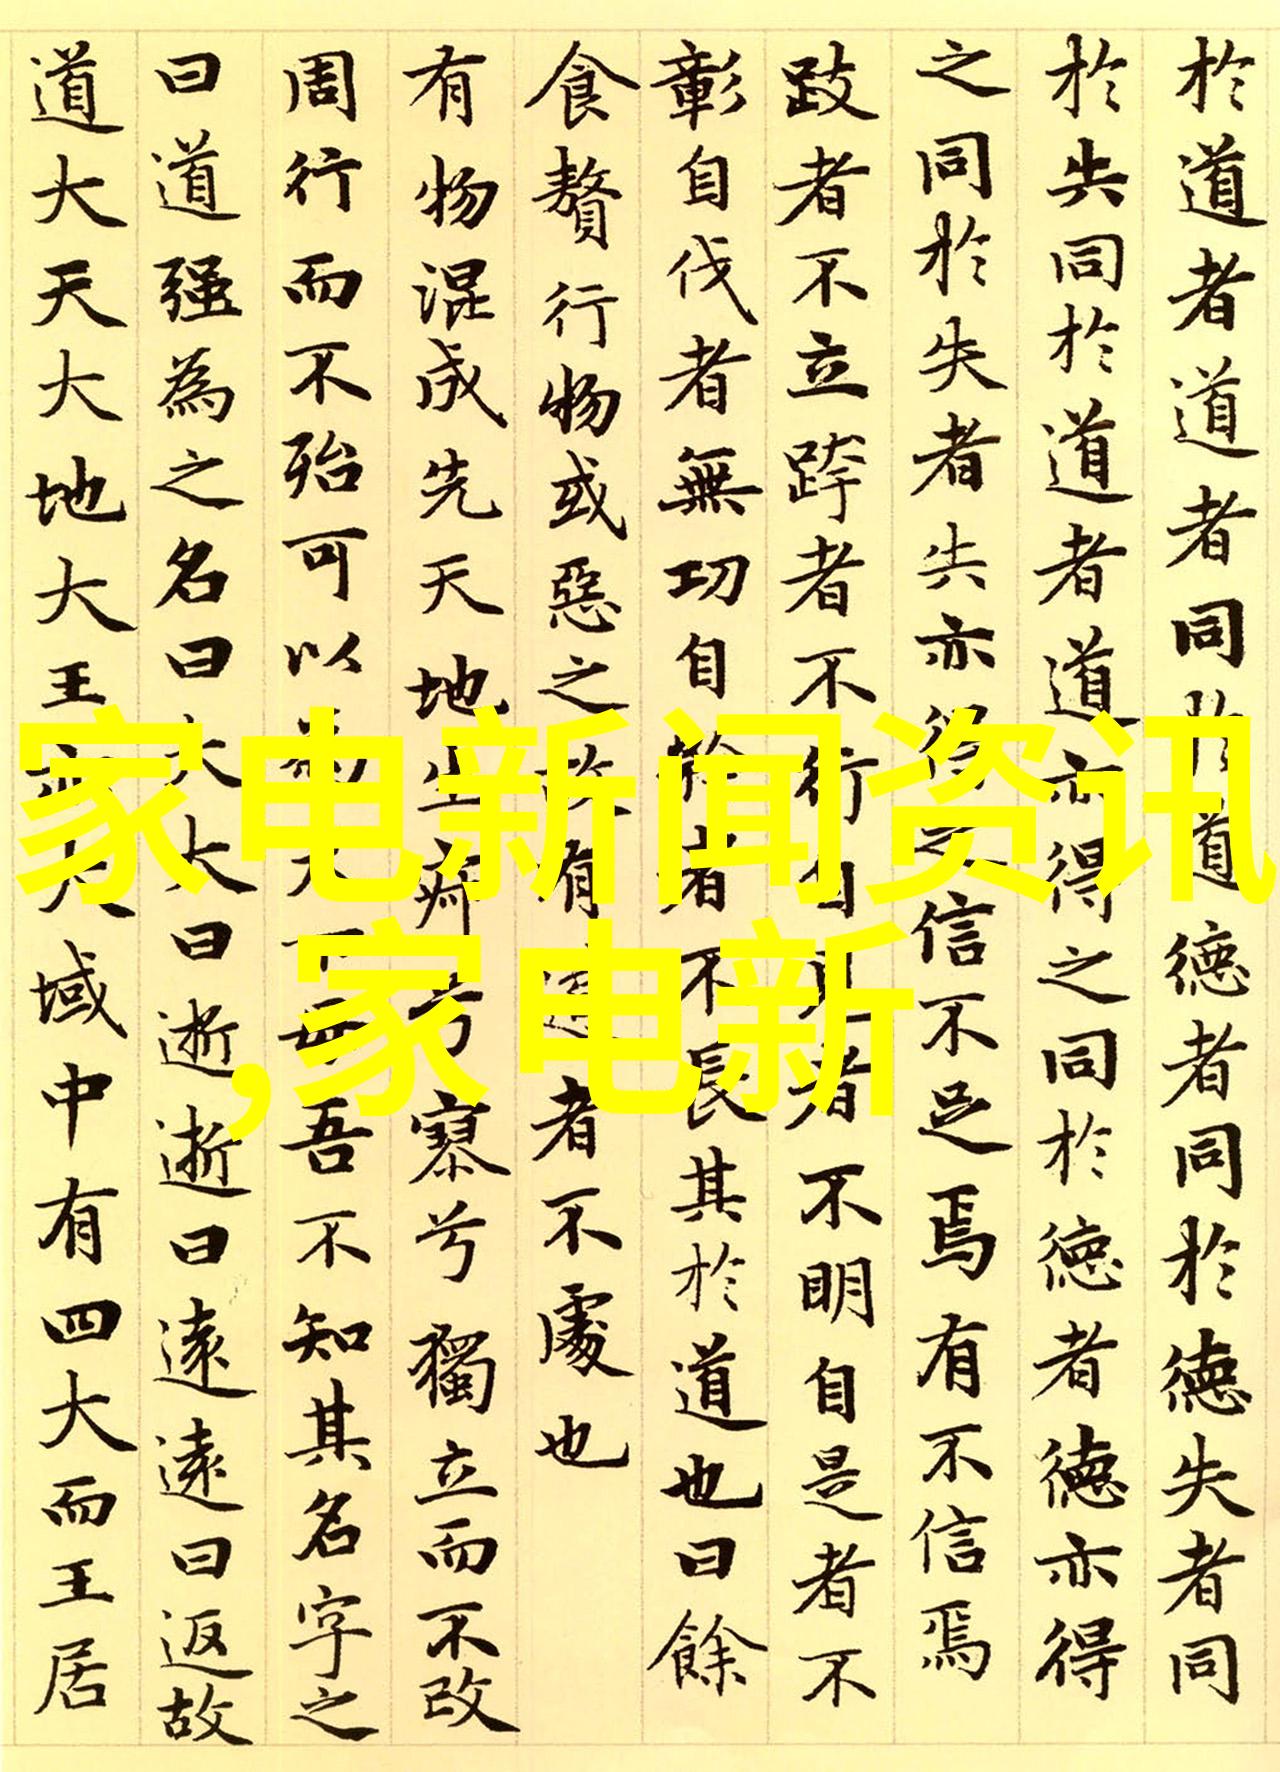 於道者道者同於道德者同於德失者同
於失同於道者道亦得之同於德者德亦得
之同於失者失亦得之信不足焉有不信焉
跂者不立跨者不行自見者不明自是者不
彰自伐者無功自矜者不長其於道也曰餘
食贅行物或惡之故有道者不處也
有物混成先天地生寂兮寥兮獨立而不改
周行而不殆可以為天下母吾不知其名字之
曰道强為之名曰大大曰逝逝曰遠遠曰返故
道大天大地大王亦大域中有四大而王居
家电新闻资讯
,家电新